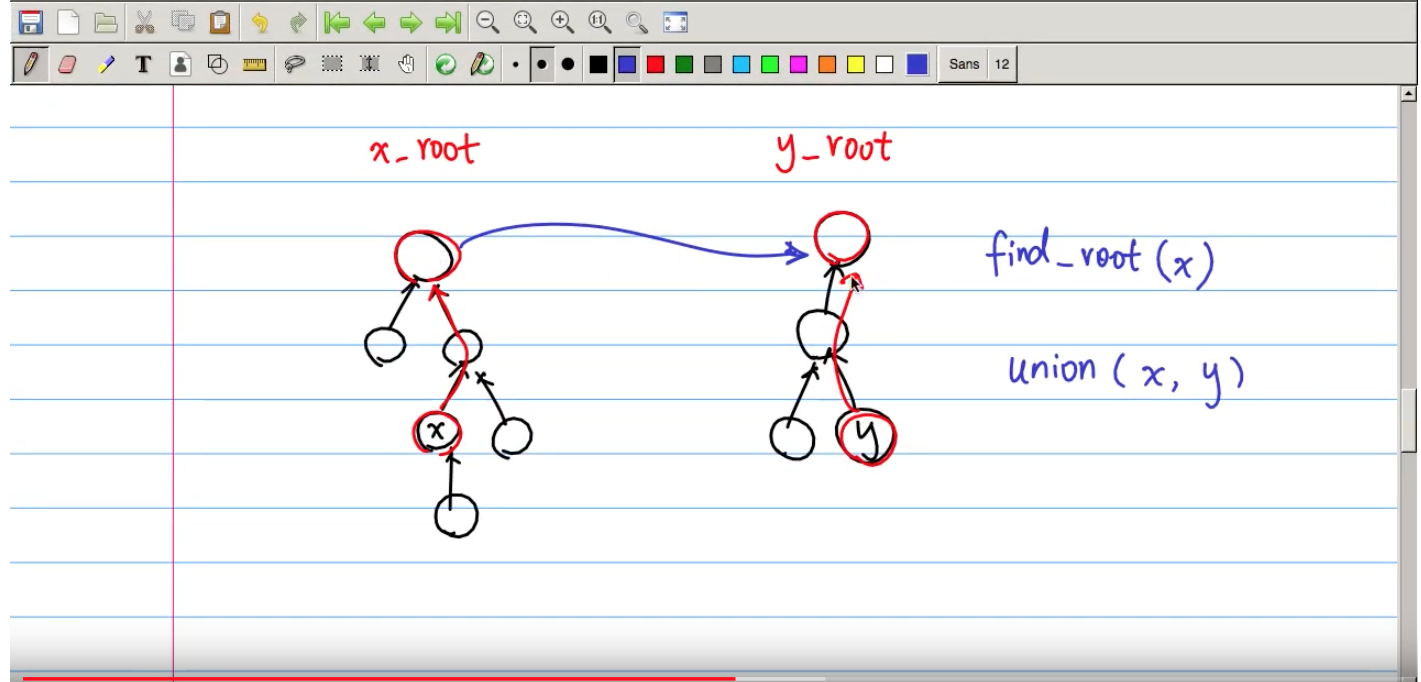 T
1:1
Sans 12
x_root
y_root
find_root(x)
union(x, y)
x
y